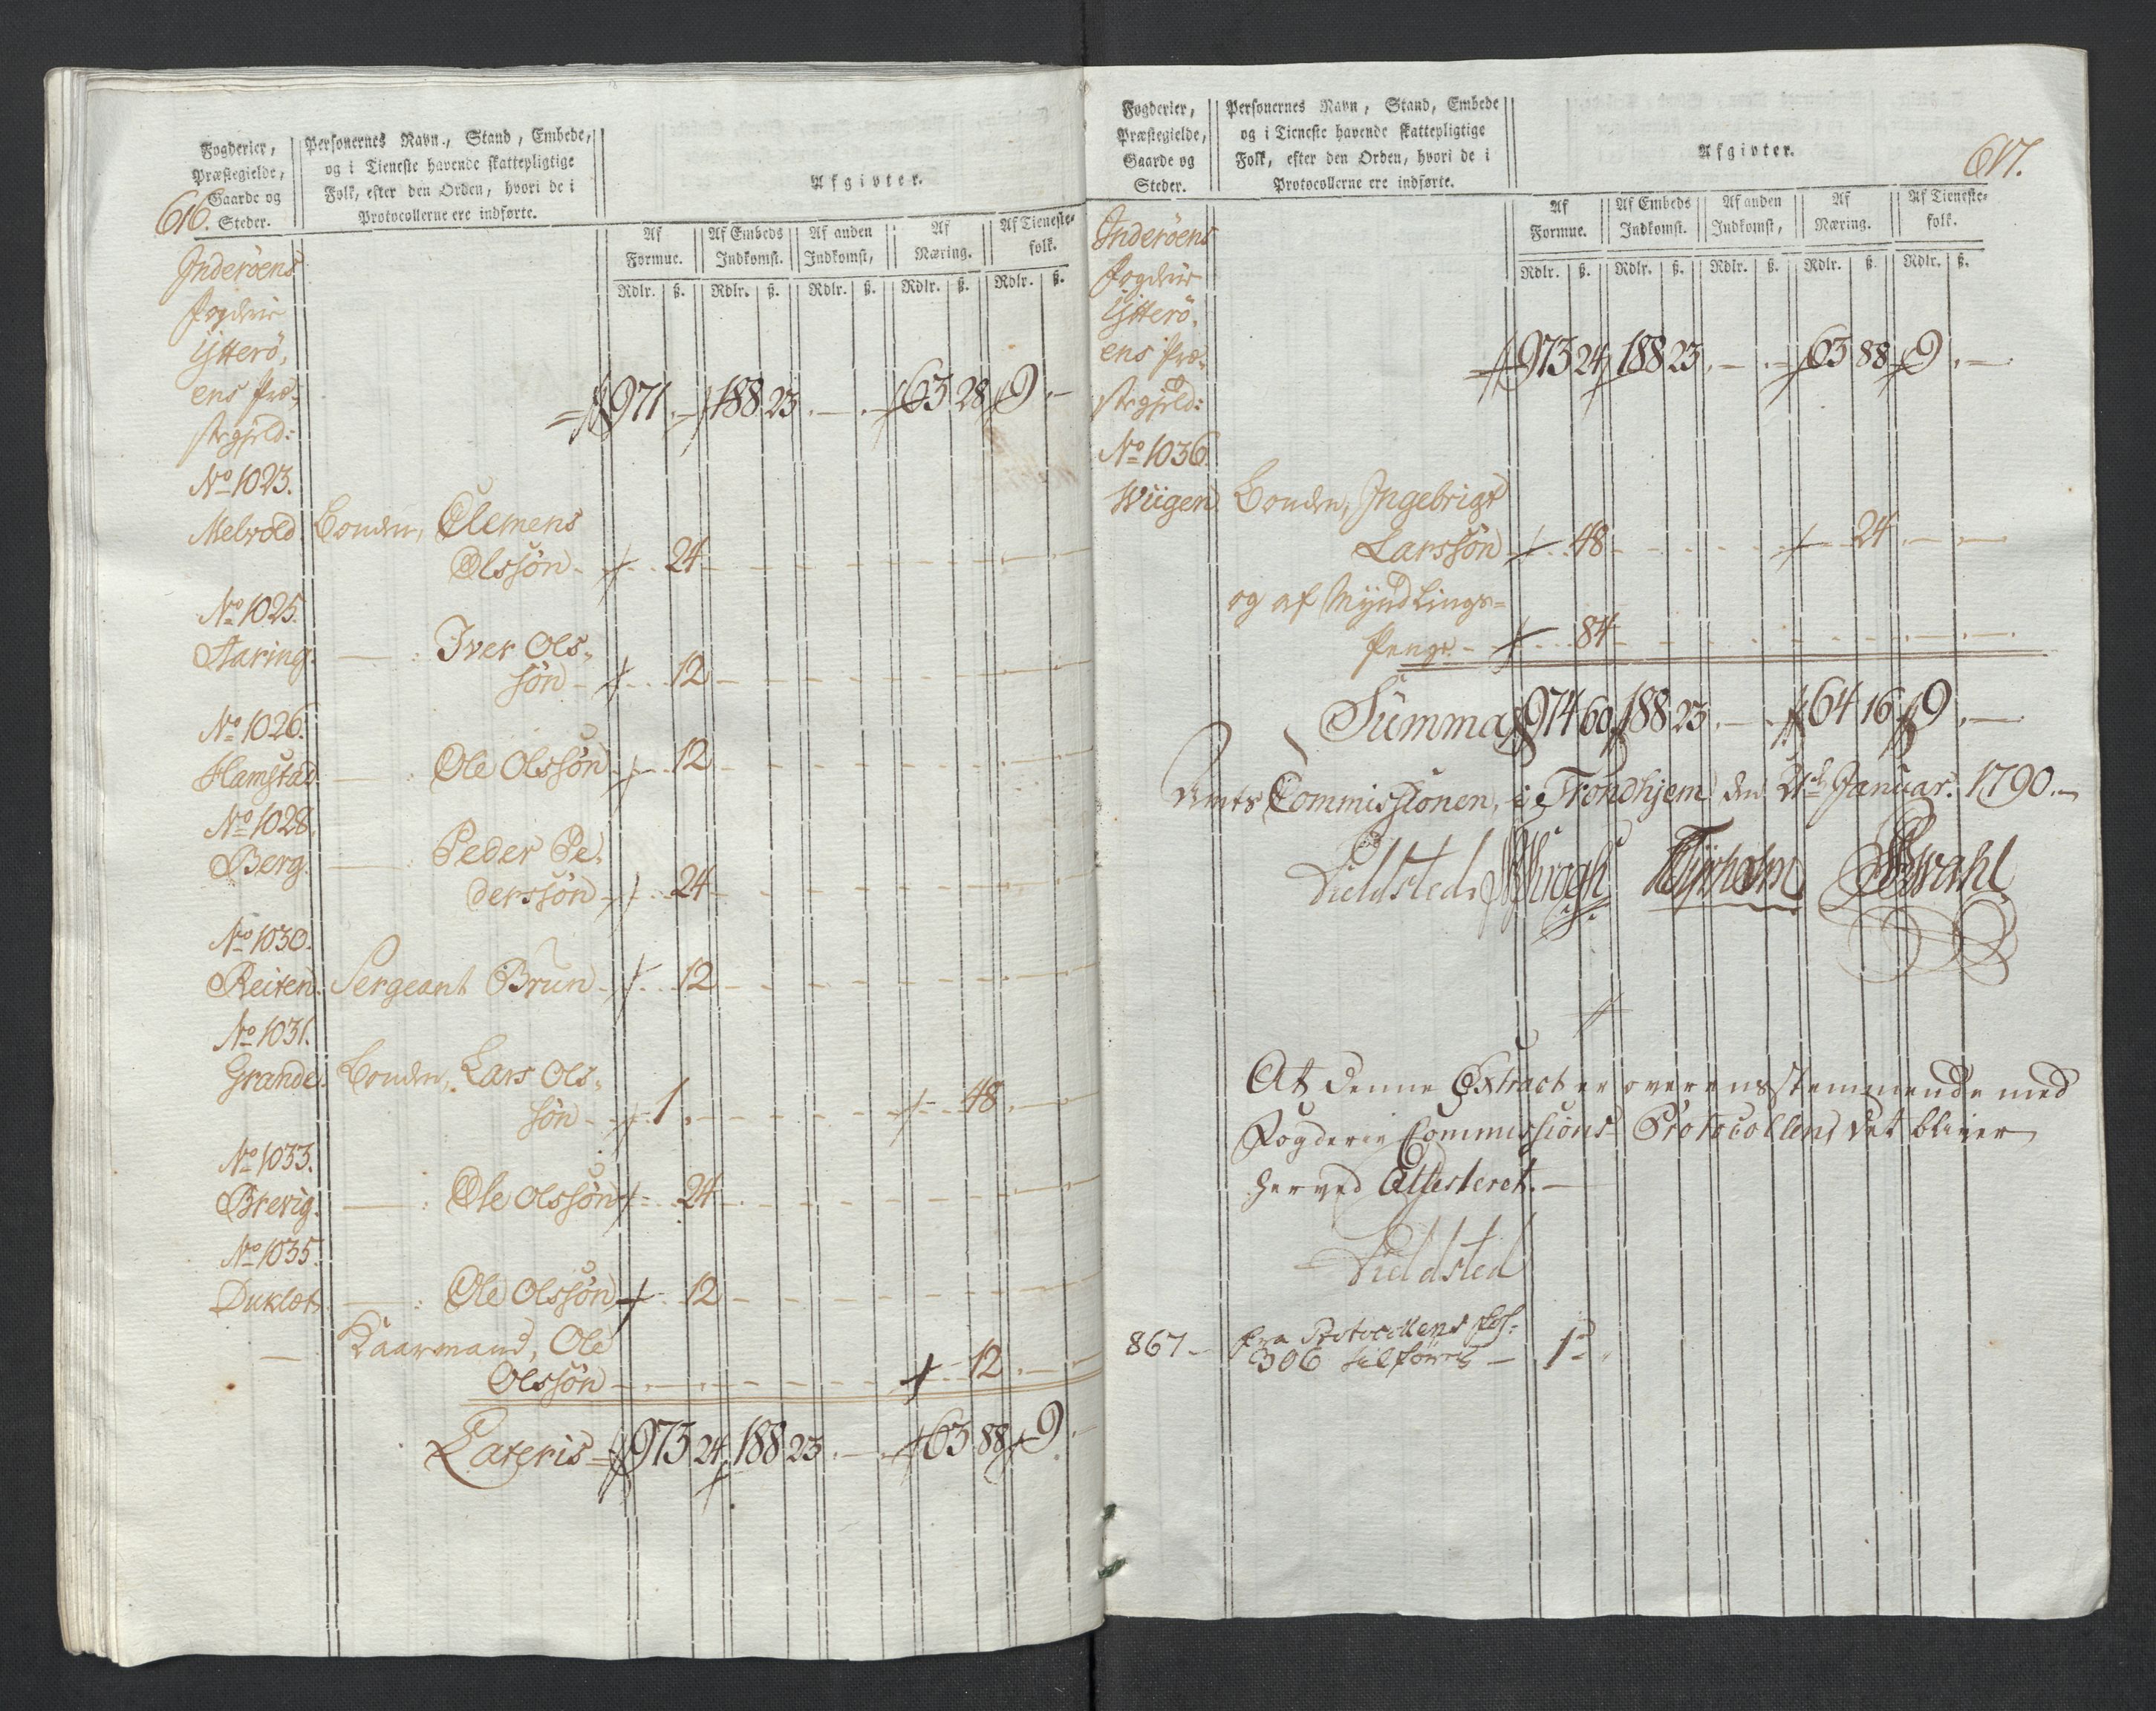 616.
Fogderier,
Præstegielde,
Gaarde og
Steder.
Personernes Navn, Stand, Embede,
og i Tieneste havende skattepligtige
Folk, efter den Orden, hvori de i
Protocollerne ere indførte.
Afgivter.
Af Formue. Af Embeds Indkomst. Af anden Indkomst, Af Næring. Af Tieneste-folk.
Rdlr. ß. Rdlr. ß. Rdlr. ß. Rdlr. ß. Rdlr. ß.
Inderöens
Fogderie
Ytterö,
ens Præ-
stegjeld:
971 . — 188 23 . — . — 63 28 9 . —
No 1023.
Melvold Bonden, Clemens
Olssön - 24
No 1025.
Aaring. — : Iver Ols,
sön - 12
No 1026.
Hamstad. — : Ole Olssön 12
No 1028.
Berg. — : Peder Pe,
derssön 24
No 1030.
Reiten. Sergeant Brun 12
No 1031.
Grande. Bonden, Lars Ols,
sön - 1 . 48
No 1033.
Brevig. — : Ole Olssön 24
No 1035.
Duklæt. — : Ole Olssön 12
— Kaarmand, Ole
Olssön 12
Lateris 973 24 188 23 . — 63 88 9 . —
617.
Fogderier,
Præstegielde,
Gaarde og
Steder.
Personernes Navn, Stand, Embede
og i Tieneste havende skattepligtige
Folk, efter den Orden, hvori de i
Protocollerne ere indførte.
Afgivter.
Af Formue. Af Embeds Indkomst. Af anden Indkomst, Af Næring. Af Tieneste-folk.
Rdlr. ß. Rdlr. ß. Rdlr. ß. Rdlr. ß. Rdlr. ß.
Inderöens
Fogderie
Ytterö,
ens Præ-
stegjeld:
973 24 188 23 . — . — 63 88 9 . —
No 1036.
Wiigen. Bonden, Ingebrigt
Larssön 48 24
og af Myndlings-
Penge - 84
Summa 974 60 188 23 . — . 64 16 9 . —
Amts Commissionen, i Trondhjem den 21de Januar. 1790. —
At denne Extract er overensstemmende med
Fogderie Commissions Protocollen, det bliver
herved Attesteret. —
867 — fra Protocollens
306 tilføres — 1